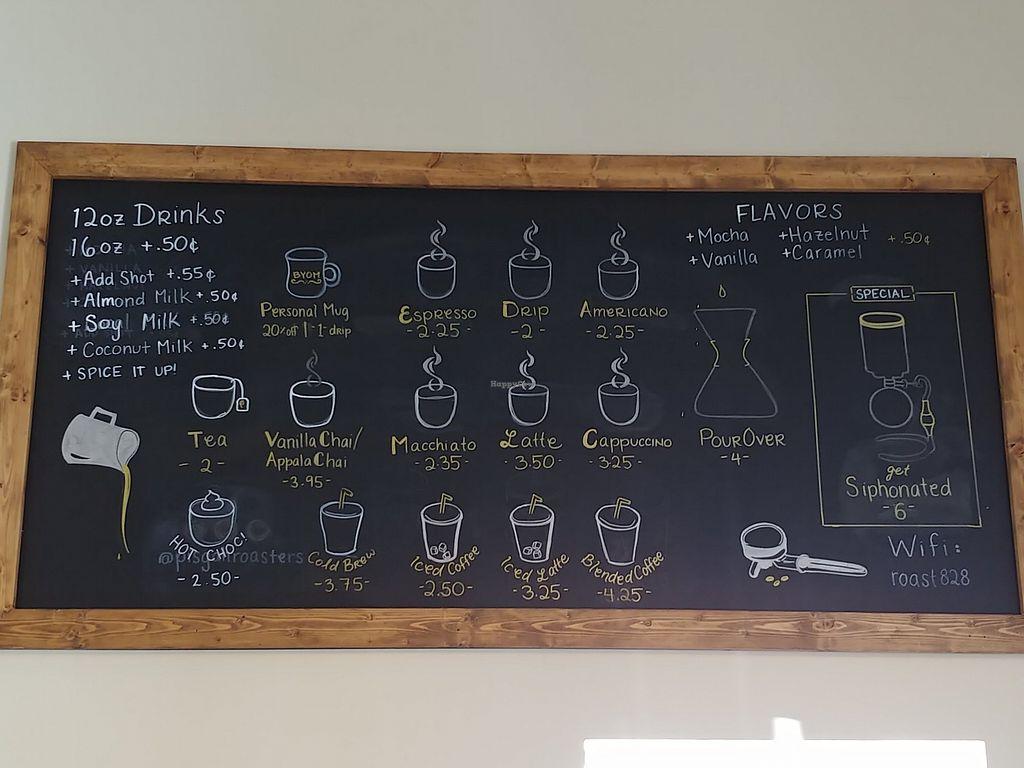 12oz Drinks
16oz +.50¢
+Add Shot +.55¢
+Almond Milk +.50¢
+Soy Milk +.50¢
+Coconut Milk +.50¢
+SPICE IT UP!
BYOM
Personal Mug
20% off | -1- drip
ESPRESSO
-2.25-
DRIP
-2-
AMERICANO
-2.25-
Tea
-2-
Vanilla Chai/
AppalaChai
-3.95-
Macchiato
-2.35-
Latte
-3.50-
CAPPUCCINO
-3.25-
HOT CHOC!
-2.50-
@pisgahroasters
Cold Brew
-3.75-
Iced Coffee
-2.50-
Iced Latte
-3.25-
Blended Coffee
-4.25-
FLAVORS
+Mocha +Hazelnut +.50¢
+Vanilla +Caramel
POUROVER
-4-
SPECIAL
get
Siphonated
-6-
Wifi:
roast828
HappyCow